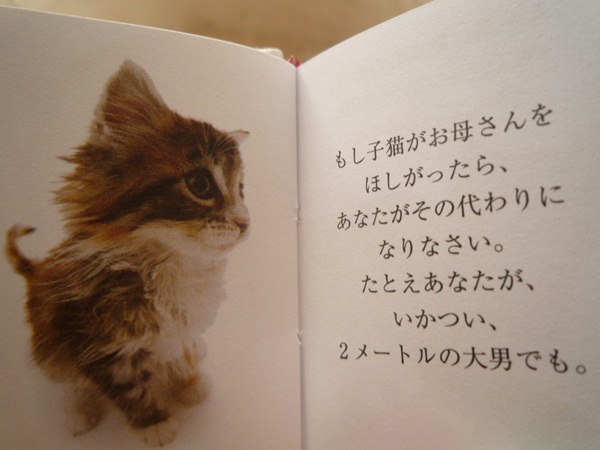 もし子猫がお母さんを
ほしがったら、
あなたがその代わりに
なりなさい。
たとえあなたが、
いかつい、
2メートルの大男でも。